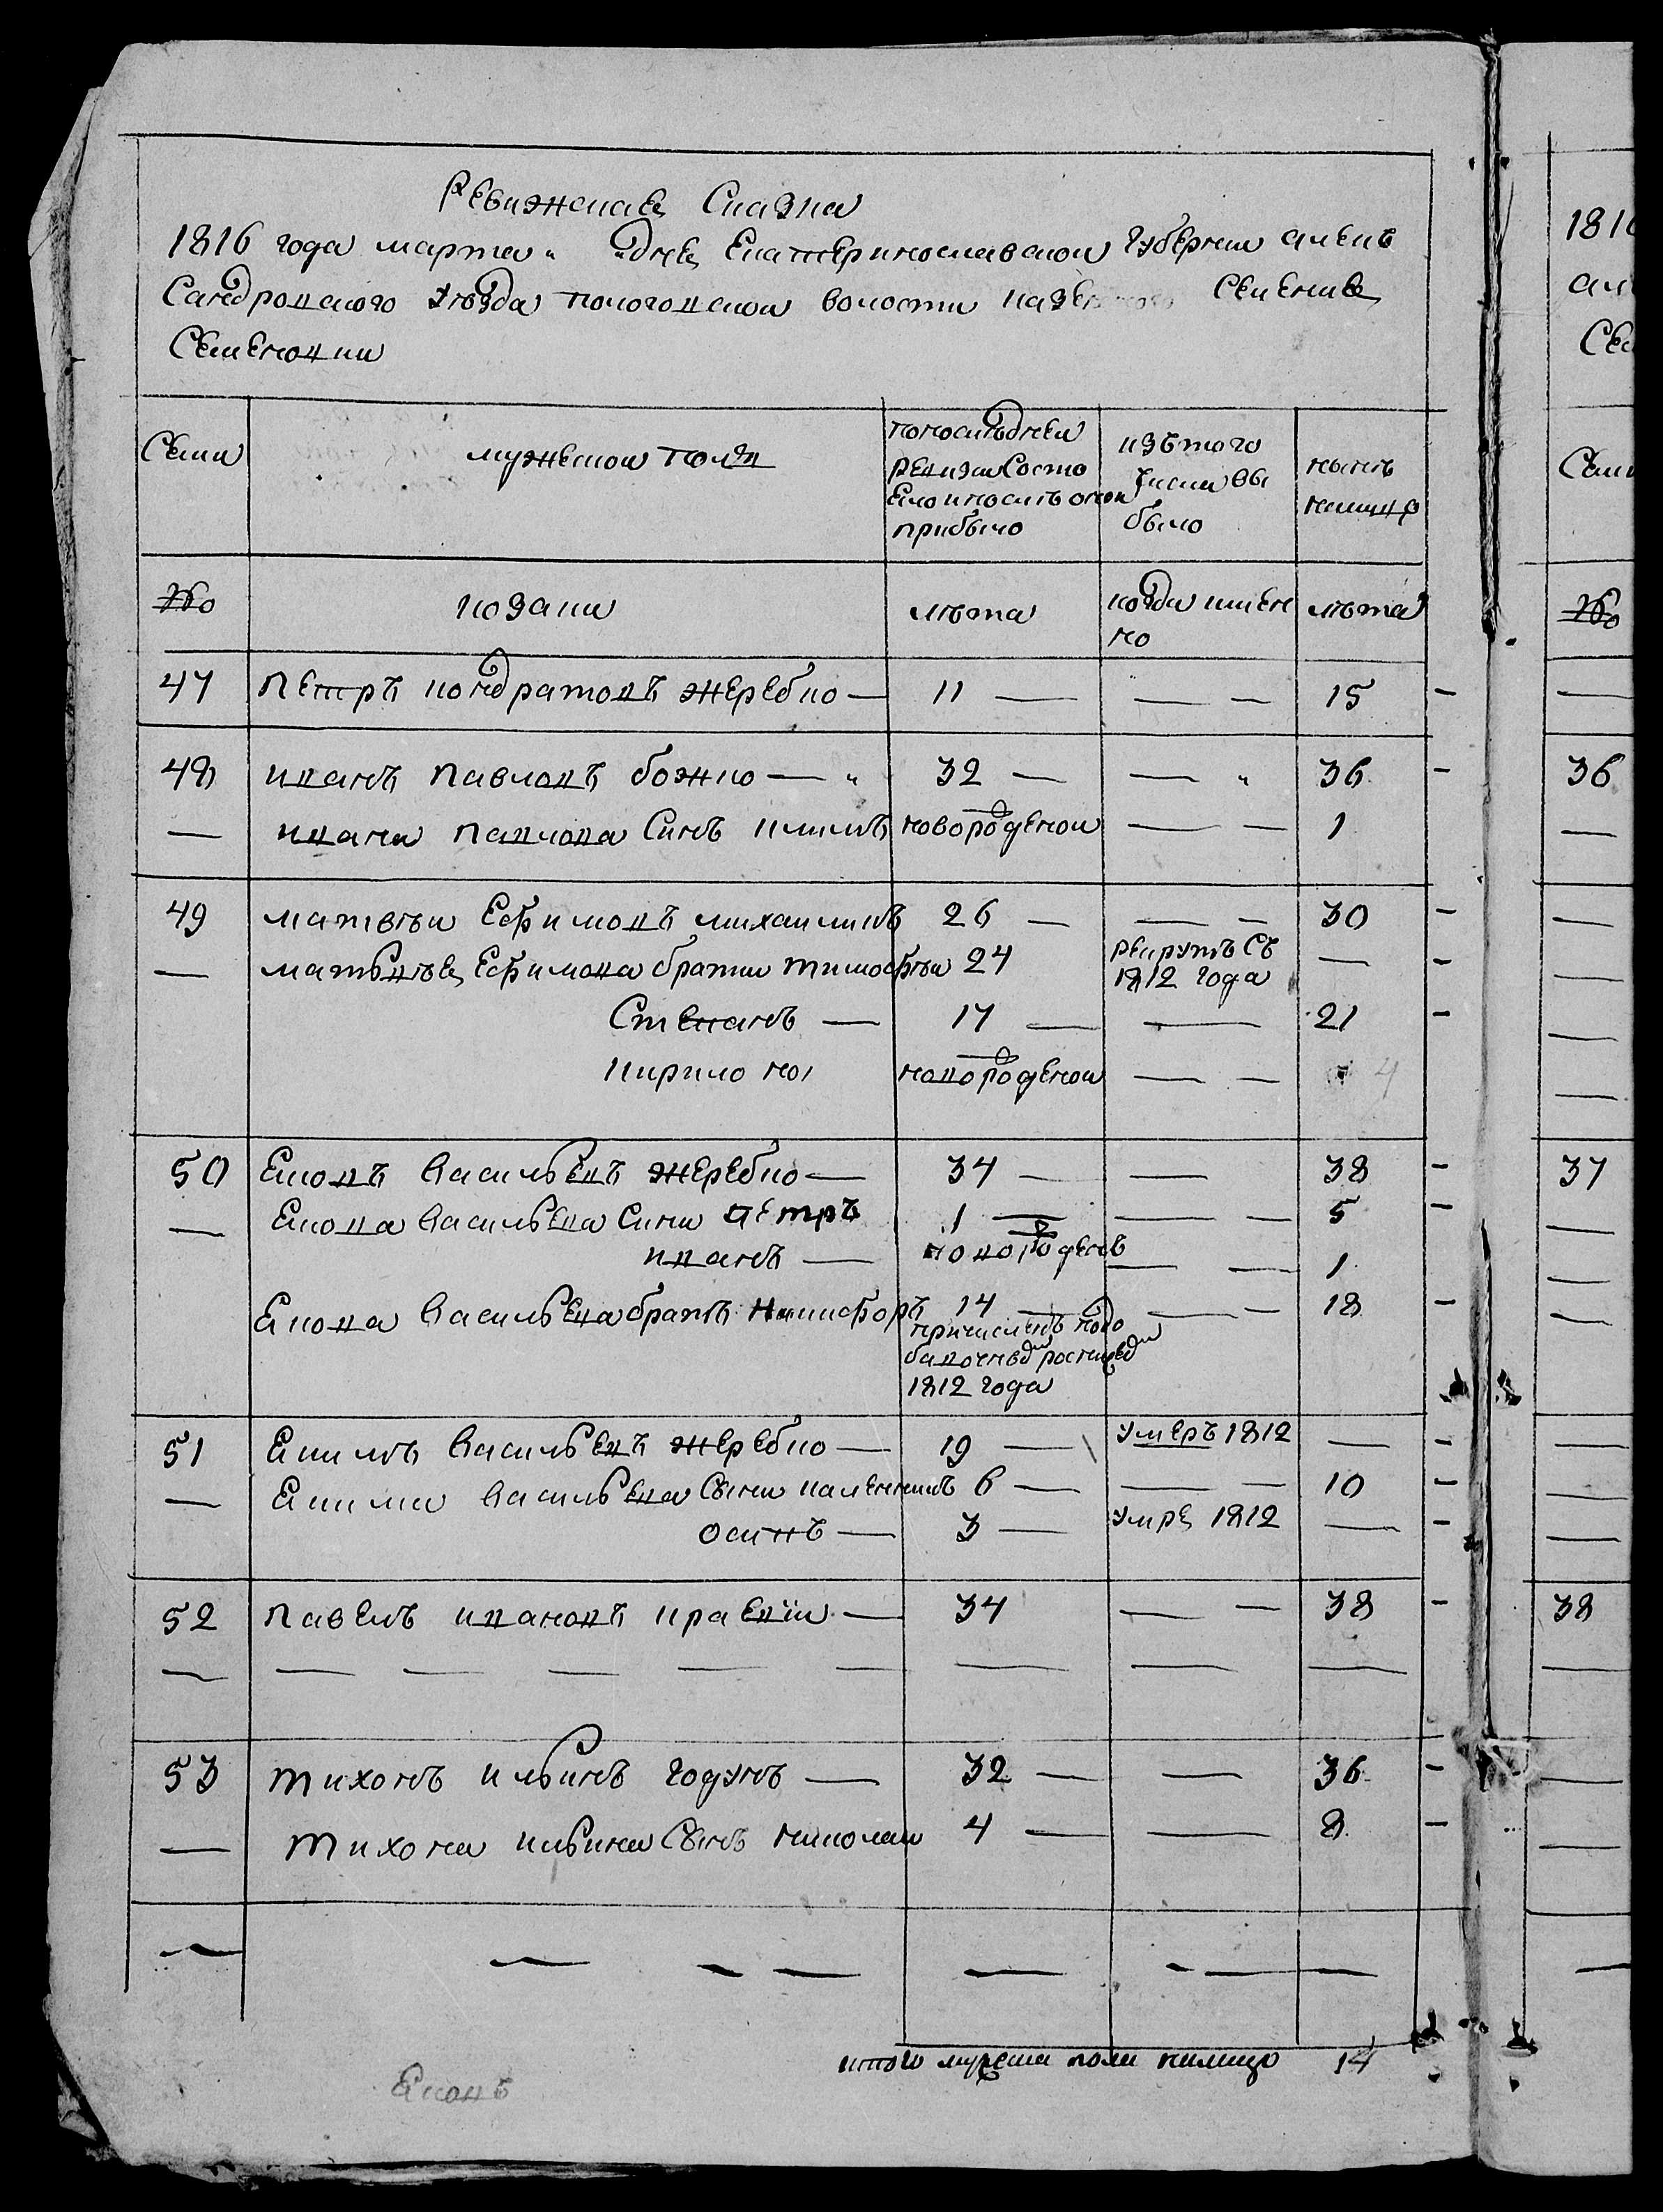 Ревижская Сказка
1816 года марта " " дня Екатеринославской Губернии алекъ
сандровского уѣзда пологовской волости казен селения
Семеновки
Семи
мужеской полъ
попослѣдней ревизии Состо яло и послѣ оной прибыло
изъ того числа вы было
нынѣ налицо
№
козаки
лѣта
когда имен но
лѣта
47 петръ кондратовъ жеребко — 11 — — — 15
48 иванъ павловъ божко — " 32 — — " 36
— ивана павлова Синъ кирилъ новорожденой — — 1
49 матвѣй Ефимовъ михаиликъ 26 — — — 30
— матвѣя Ефимова братья тимофѣй 24 рекрутъ съ 1812 года —
Степанъ — 17 — — 21
кирило новорожденой — — 4
50 Яковъ васильевъ жеребко — 34 — — 38
— Якова васильева сини петръ 1 — — — 5
иванъ — новорожденъ — — 1
Якова васильева братъ никифоръ 14 — — — 18
причисленъ по
1812 года
51 Якимъ васильевъ жеребко — 19 — умеръ 1812 —
— Якима васильева Сыни калениикъ 6 — — — 10
осипъ — 3 — умре 1812 —
52 павелъ ивановъ краевій — 34 — — 38
— — — — — — — — —
53 тихонъ ильинъ годунъ — 32 — — 36
— тихона ильина Сынъ николай 4 — — 8
— — — — — — — —
итого мужеска пола налицо 14
Яковъ
1816
але
Сем
Семи
№
—
36
—
—
—
—
—
37
—
—
—
—
—
—
38
—
—
—
—